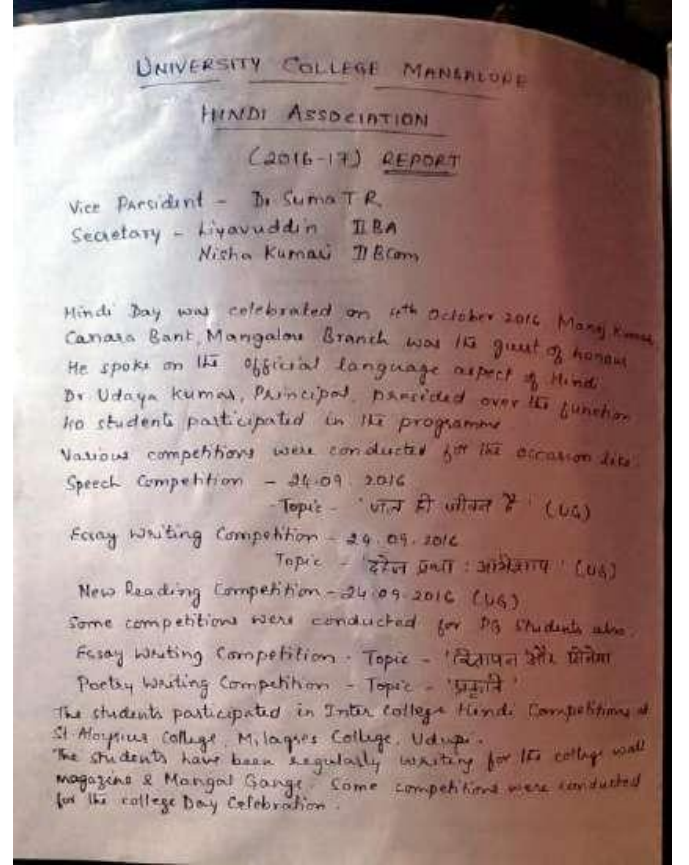 UNIVERSITY COLLEGE MANGALORE
HINDI ASSOCIATION
(2016-17) REPORT
Vice President - Dr Suma T R
Secretary - Liyavuddin II BA
Nisha Kumari II BCom
Hindi Day was celebrated on 4th October 2016 Manoj Kumar,
Canara Bank, Mangalore Branch was the guest of honour
He spoke on the official language aspect of Hindi
Dr Udaya Kumar, Principal, presided over the function
40 students participated in the programme
Various competitions were conducted for the occasion like.
Speech Competition - 24.09.2016
Topic - 'जल ही जीवन है' (UG)
Essay Writing Competition - 24.09.2016
Topic - 'दहेज प्रथा : अभिशाप' (UG)
New Reading Competition - 24.09.2016 (UG)
Some competitions were conducted for PG students also.
Essay Writing Competition - Topic - 'विज्ञापन और सिनेमा
Poetry Writing Competition - Topic - 'प्रकृति'
The students participated in Inter College Hindi Competitions at
St Aloysius College, Milagres College, Udupi.
The students have been regularly writing for the college wall
magazine & Mangal Gange. Some competitions were conducted
for the college Day Celebration.